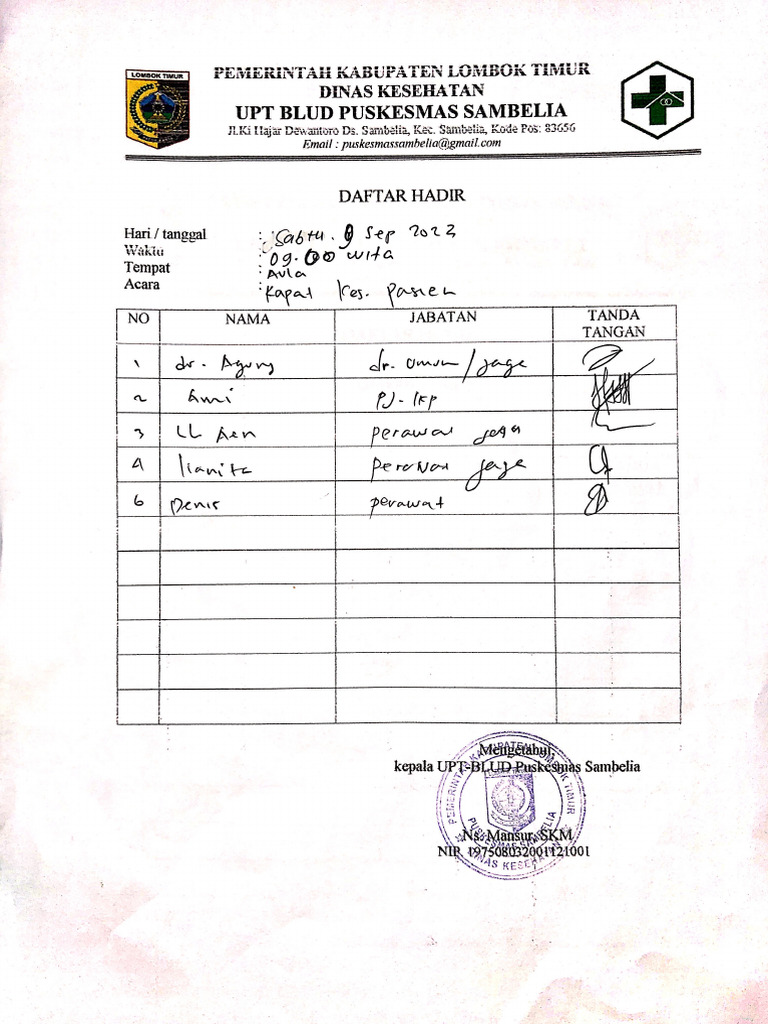 LOMBOK TIMUR
PEMERINTAH KABUPATEN LOMBOK TIMUR
DINAS KESEHATAN
UPT BLUD PUSKESMAS SAMBELIA
Jl.Ki Hajar Dewantoro Ds. Sambelia, Kec. Sambelia, Kode Pos: 83656
Email : puskesmassambelia@gmail.com
DAFTAR HADIR
Hari / tanggal : Sabtu. 9 Sep 2023
Waktu : 09.00 wita
Tempat : Aula
Acara : Rapat Kes. Pasien
NO NAMA JABATAN TANDA TANGAN
1 dr. Agung dr. umum / jaga
2 Ami PJ-IKP
3 LL Aen perawat jaga
4 perawat jaga
6 Denis perawat
Mengetahui,
kepala UPT-BLUD Puskesmas Sambelia
Ns. Mansur, SKM
NIP. 197508032001121001
PEMERINTAH KABUPATEN LOMBOK TIMUR
PUSKESMAS SAMBELIA
DINAS KESEHATAN